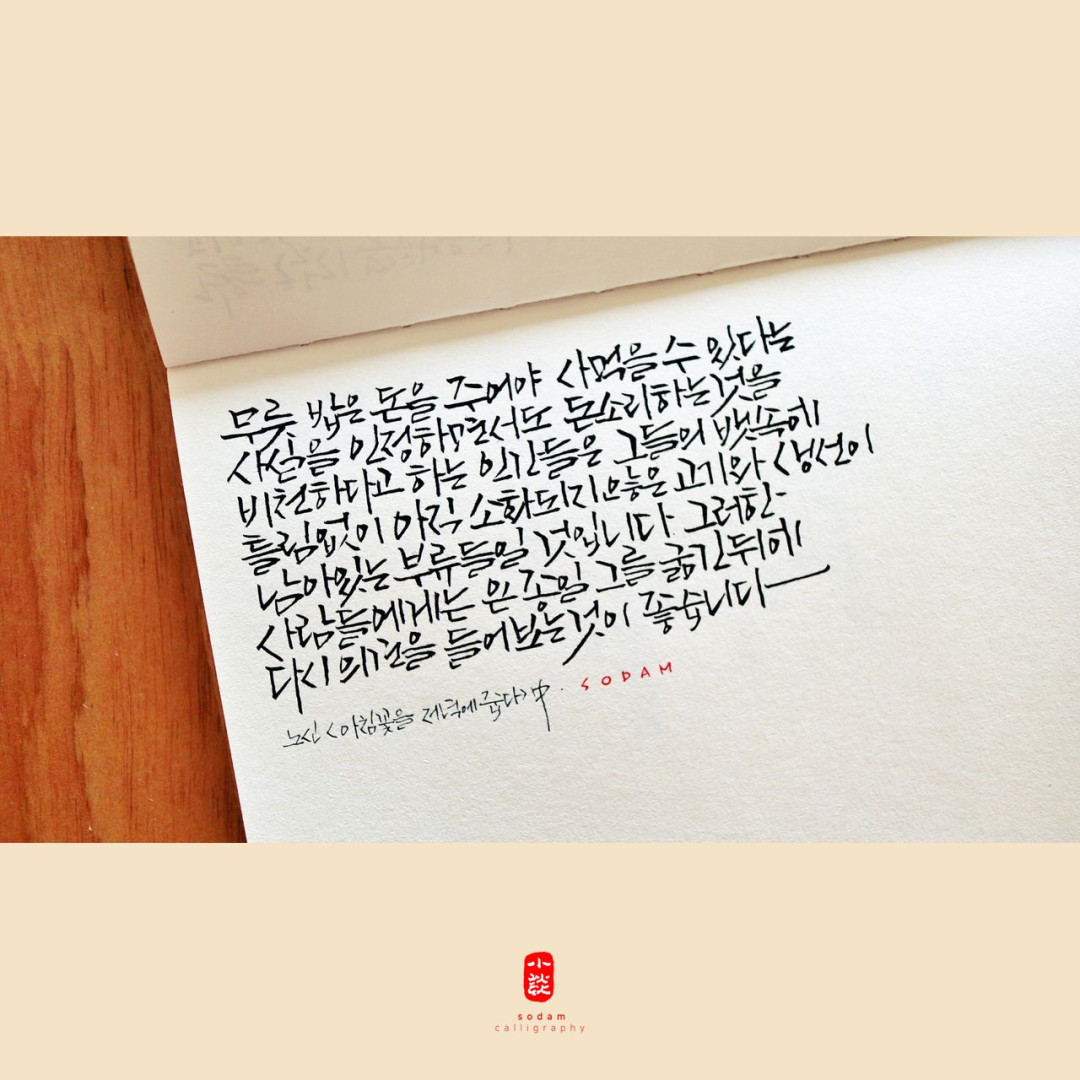 무릇 밥은 돈을 주어야 사먹을 수 있다는
사실을 인정하면서도 돈소리하는것을
비천하다고 하는 인간들은 그들의 뱃속에
틀림없이 아직 소화되지 않은 고기와 생선이
남아있는 부류들일 것입니다. 그러한
사람들에게는 온종일 그를 굶긴뒤에
다시 의견을 들어보는것이 좋습니다
노신 <아침꽃을 저녁에 줍다> 中. SODAM
小談
sodam
calligraphy